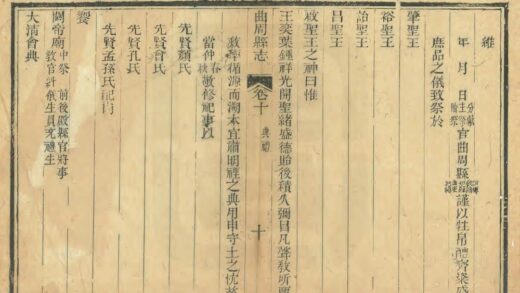 維
年 月 日 分獻 主祭 陪祭 官曲周縣 謹以牲帛醴齊粢盛
庶品之儀致祭於
肇聖王
裕聖王
詒聖王
昌聖王
啟聖王之神曰惟
王奕葉鍾祥光開聖緒盛德貽後積久彌昌凡聲敎所
曲周縣志 卷十 典禮 十
敎率循源而溯本宜肅明禋之典用申守土之忱
當仲 春 秋 敬修祀事以
先賢顏氏
先賢曾氏
先賢孔氏
先賢孟孫氏配尚
饗
關帝廟中祭 前後殿縣官將事
敎官 生員充禮生
大清會典